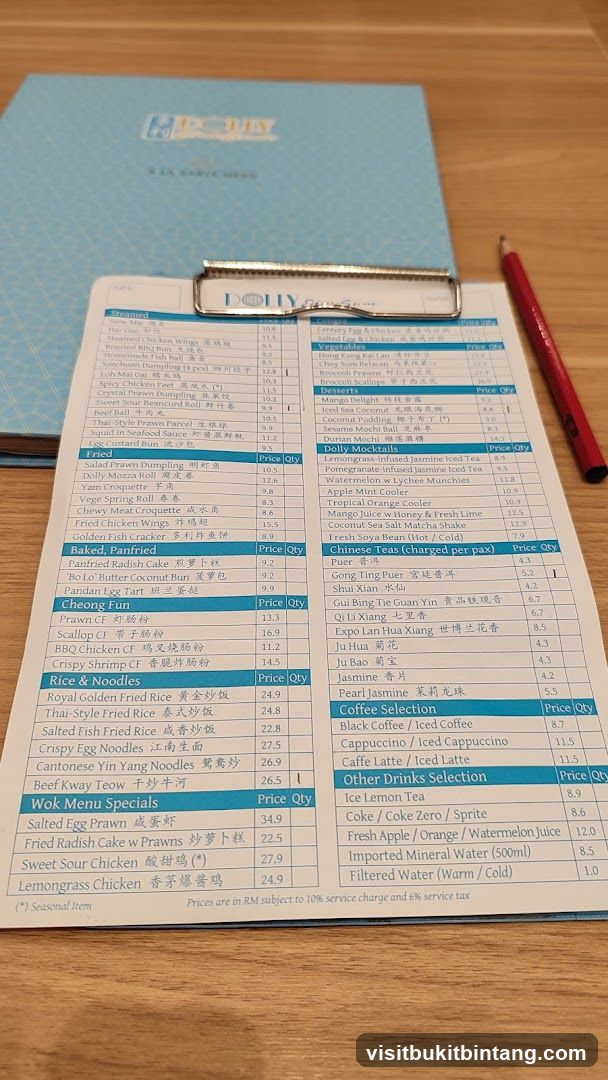 DOLLY
Á LA CARTE MENU
Table:
DOLLY Dim Sum
Steamed
Siew Mai 烧卖 10.8
Har Gao 虾饺 11.5
Steamed Chicken Wings 蒸鸡翅
Roasted BBQ Bun 叉烧包
Homemade Fish Ball
Szechuan Dumpling (4 pcs) 四川饺子 12.8
Loh Mai Gai 糯米鸡 10.3
Spicy Chicken Feet 蒸凤爪 (*) 11.5
Crystal Prawn Dumpling 韭菜饺 10.2
Sweet Sour Beancurd Roll 鲜竹卷 9.9
Beef Ball 牛肉丸 9.9
Thai-Style Prawn Parcel 生根球 10.5
Squid in Seafood Sauce 虾酱蒸鲜鱿 11.2
Egg Custard Bun 流沙包 9.5
Fried Price Qty
Salad Prawn Dumpling 明虾角 10.5
Dolly Mozza Roll 腐皮卷 12.6
Yam Croquette 芋角 9.8
Vege Spring Roll 春卷 8.3
Chewy Meat Croquette 咸水角 8.6
Fried Chicken Wings 炸鸡翅 15.5
Golden Fish Cracker 多利炸鱼饼 8.9
Baked, Panfried Price Qty
Panfried Radish Cake 煎萝卜糕 9.2
'Bo Lo' Butter Coconut Bun 菠萝包 9.2
Pandan Egg Tart 班兰蛋挞 9.9
Cheong Fun Price Qty
Prawn CF 虾肠粉 13.3
Scallop CF 带子肠粉 16.9
BBQ Chicken CF 鸡叉烧肠粉 11.2
Crispy Shrimp CF 香脆炸肠粉 14.5
Rice & Noodles Price Qty
Royal Golden Fried Rice 黄金炒饭 24.9
Thai-Style Fried Rice 泰式炒饭 24.8
Salted Fish Fried Rice 咸香炒饭 22.8
Crispy Egg Noodles 江南生面 27.5
Cantonese Yin Yang Noodles 鸳鸯炒 26.9
Beef Kway Teow 干炒牛河 26.5
Wok Menu Specials Price Qty
Salted Egg Prawn 咸蛋虾 34.9
Fried Radish Cake w Prawns 炒萝卜糕 22.5
Sweet Sour Chicken 酸甜鸡 (*) 27.9
Lemongrass Chicken 香茅爆酱鸡 24.9
(*) Seasonal Item
Congee Price Qty
Century Egg & Chicken
Salted Egg & Chicken
Vegetables Price Qty
Hong Kong Kai Lan 清炒芥兰
Choy Sum Belacan
Broccoli Prawns 虾仁西兰花 27.9
Broccoli Scallops 带子西兰花
Desserts Price Qty
Mango Delight 杨枝金露 9.2
Iced Sea Coconut 龙眼海底椰 8.8
Coconut Pudding 椰子布丁 (*) 9.0
Sesame Mochi Ball 芝麻枣 8.3
Durian Mochi 榴莲麻糬 14.3
Dolly Mocktails Price Qty
Lemongrass-Infused Jasmine Iced Tea 8.9
Pomegranate-Infused Jasmine Iced Tea 9.5
Watermelon w Lychee Munchies 11.8
Apple Mint Cooler 10.9
Tropical Orange Cooler 10.9
Mango Juice w Honey & Fresh Lime 12.5
Coconut Sea Salt Matcha Shake 12.9
Fresh Soya Bean (Hot / Cold) 7.9
Chinese Teas (charged per pax) Price Qty
Puer 普洱 4.3
Gong Ting Puer 宫廷普洱 5.2
Shui Xian 水仙 4.2
Gui Bing Tie Guan Yin 贵品铁观音 6.7
Qi Li Xiang 七里香 6.7
Expo Lan Hua Xiang 世博兰花香 8.5
Ju Hua 菊花 4.3
Ju Bao 菊宝 4.3
Jasmine 香片 4.2
Pearl Jasmine 茉莉龙珠 5.5
Coffee Selection Price Qty
Black Coffee / Iced Coffee 8.7
Cappuccino / Iced Cappuccino 11.5
Caffe Latte / Iced Latte 11.5
Other Drinks Selection Price Qty
Ice Lemon Tea 8.9
Coke / Coke Zero / Sprite 8.6
Fresh Apple / Orange / Watermelon Juice 12.0
Imported Mineral Water (500ml) 8.5
Filtered Water (Warm / Cold) 1.0
Prices are in RM subject to 10% service charge and 6% service tax
visitbukitbintang.com